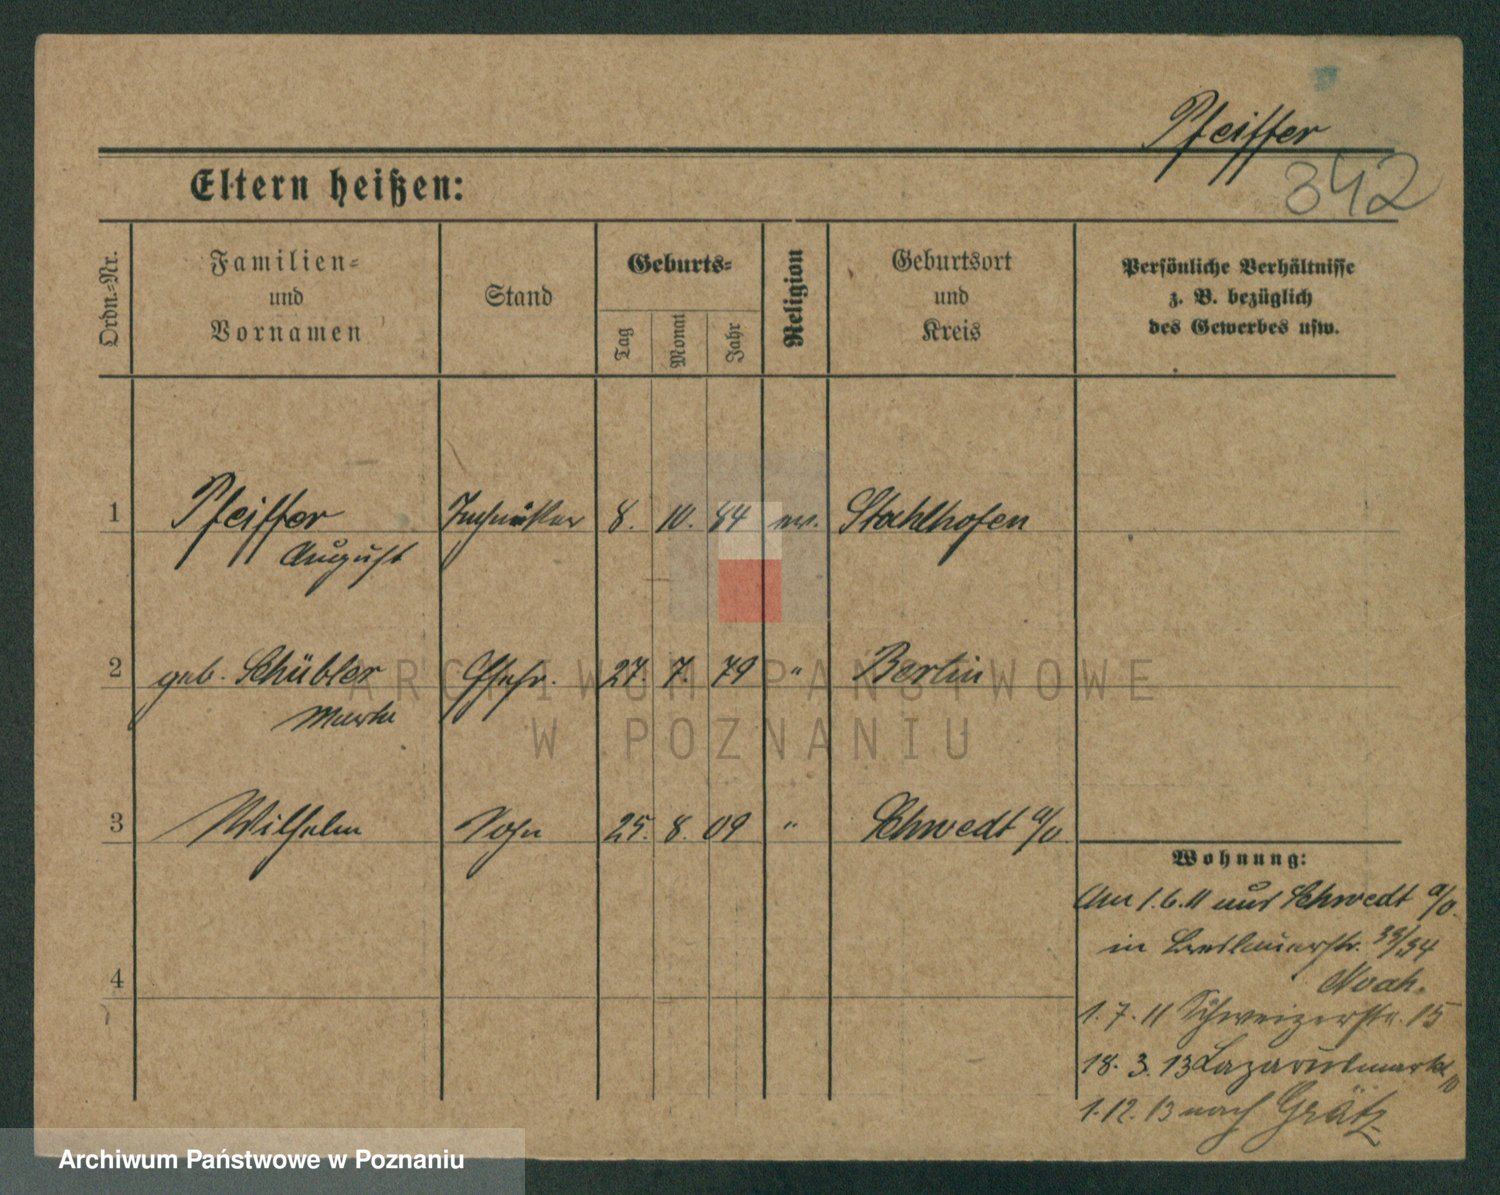 Pfeiffer
342
Eltern heißen:
Ordn.-Nr.
Familien-
und
Vornamen
Stand
Geburts-
Tag
Monat
Jahr
Religion
Geburtsort
und
Kreis
Persönliche Verhältnisse
z. B. bezüglich
des Gewerbes usw.
1 Pfeiffer Techniker 8. 10. 84 ev. Stahlhofen
August
2 geb. Schübler Ehefr. 27. 7. 79 " Berlin
3 Wilhelm Sohn 25. 8. 09 " Schwedt a/O.
Wohnung:
Am 1.6.11 aus Schwedt a/O.
in Breslauerstr. 33/34
Noah.
1. 7. 11 Schweizerstr. 15
18. 3. 13 Lazarusmarkt
1. 12. 13 nach Grätz
4
ARCHIWUM PAŃSTWOWE
W POZNANIU
Archiwum Państwowe w Poznaniu